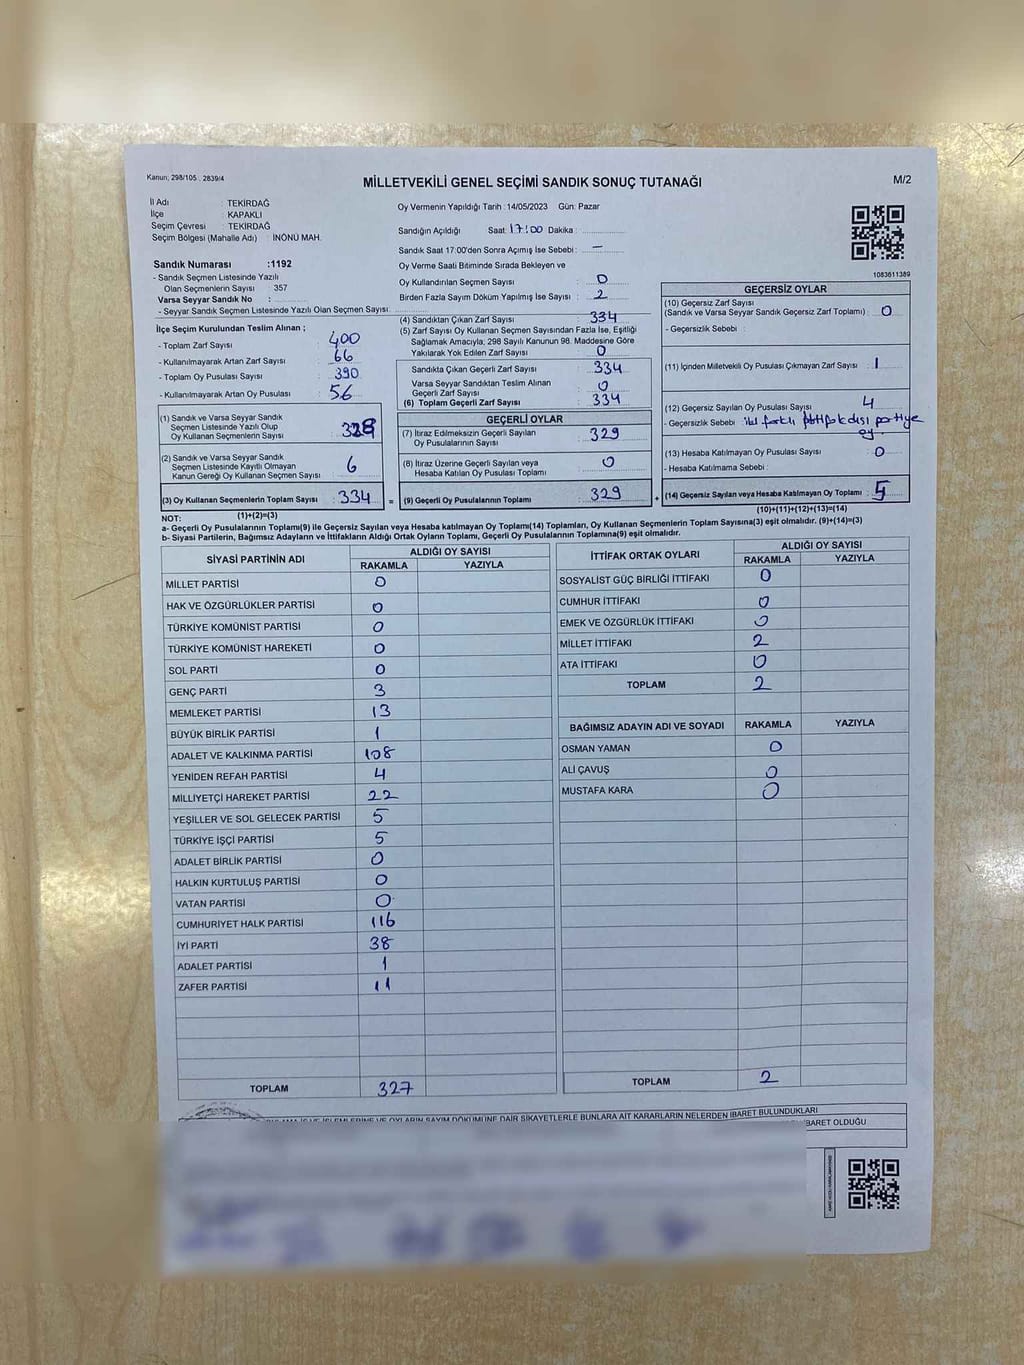 Kanun; 298/105 . 2839/4
MİLLETVEKİLİ GENEL SEÇİMİ SANDIK SONUÇ TUTANAĞI
M/2
İl Adı : TEKİRDAĞ
İlçe : KAPAKLI
Seçim Çevresi : TEKİRDAĞ
Seçim Bölgesi (Mahalle Adı) : İNÖNÜ MAH.
Oy Vermenin Yapıldığı Tarih : 14/05/2023 Gün: Pazar
Sandığın Açıldığı Saat: 17:00 Dakika :
Sandık Saat 17:00'den Sonra Açımış İse Sebebi : —
Oy Verme Saati Bitiminde Sırada Bekleyen ve
Oy Kullandırılan Seçmen Sayısı : 0
Birden Fazla Sayım Döküm Yapılmış İse Sayısı : 2
1083611389
Sandık Numarası :1192
- Sandık Seçmen Listesinde Yazılı
Olan Seçmenlerin Sayısı : 357
Varsa Seyyar Sandık No :
- Seyyar Sandık Seçmen Listesinde Yazılı Olan Seçmen Sayısı:
İlçe Seçim Kurulundan Teslim Alınan ;
- Toplam Zarf Sayısı : 400
- Kullanılmayarak Artan Zarf Sayısı : 66
- Toplam Oy Pusulası Sayısı : 390
- Kullanılmayarak Artan Oy Pusulası : 56
(1) Sandık ve Varsa Seyyar Sandık
Seçmen Listesinde Yazılı Olup
Oy Kullanan Seçmenlerin Sayısı : 328
(2) Sandık ve Varsa Seyyar Sandık
Seçmen Listesinde Kayıtlı Olmayan
Kanun Gereği Oy Kullanan Seçmen Sayısı : 6
(3) Oy Kullanan Seçmenlerin Toplam Sayısı : 334 =
(1)+(2)=(3)
(4) Sandıktan Çıkan Zarf Sayısı : 334
(5) Zarf Sayısı Oy Kullanan Seçmen Sayısından Fazla İse, Eşitliği
Sağlamak Amacıyla; 298 Sayılı Kanunun 98. Maddesine Göre
Yakılarak Yok Edilen Zarf Sayısı : 0
Sandıkta Çıkan Geçerli Zarf Sayısı : 334
Varsa Seyyar Sandıktan Teslim Alınan
Geçerli Zarf Sayısı : 0
(6) Toplam Geçerli Zarf Sayısı : 334
GEÇERLİ OYLAR
(7) İtiraz Edilmeksizin Geçerli Sayılan
Oy Pusulalarının Sayısı : 329
(8) İtiraz Üzerine Geçerli Sayılan veya
Hesaba Katılan Oy Pusulası Toplamı : 0
(9) Geçerli Oy Pusulalarının Toplamı : 329 +
GEÇERSİZ OYLAR
(10) Geçersiz Zarf Sayısı
(Sandık ve Varsa Seyyar Sandık Geçersiz Zarf Toplamı) : 0
- Geçersizlik Sebebi :
(11) İçinden Milletvekili Oy Pusulası Çıkmayan Zarf Sayısı : 1
(12) Geçersiz Sayılan Oy Pusulası Sayısı : 4
- Geçersizlik Sebebi : iki farklı dışı partiye
oy.
(13) Hesaba Katılmayan Oy Pusulası Sayısı : 0
- Hesaba Katılmama Sebebi :
(14) Geçersiz Sayılan veya Hesaba Katılmayan Oy Toplamı : 5
(10)+(11)+(12)+(13)=(14)
NOT:
a- Geçerli Oy Pusulalarının Toplamı(9) ile Geçersiz Sayılan veya Hesaba katılmayan Oy Toplamı(14) Toplamları, Oy Kullanan Seçmenlerin Toplam Sayısına(3) eşit olmalıdır. (9)+(14)=(3)
b- Siyasi Partilerin, Bağımsız Adayların ve İttifakların Aldığı Ortak Oyların Toplamı, Geçerli Oy Pusulasının Toplamına(9) eşit olmalıdır.
SİYASİ PARTİNİN ADI ALDIĞI OY SAYISI
RAKAMLA YAZIYLA
MİLLET PARTİSİ 0
HAK VE ÖZGÜRLÜKLER PARTİSİ 0
TÜRKİYE KOMÜNİST PARTİSİ 0
TÜRKİYE KOMÜNİST HAREKETİ 0
SOL PARTİ 0
GENÇ PARTİ 3
MEMLEKET PARTİSİ 13
BÜYÜK BİRLİK PARTİSİ 1
ADALET VE KALKINMA PARTİSİ 108
YENİDEN REFAH PARTİSİ 4
MİLLİYETÇİ HAREKET PARTİSİ 22
YEŞİLLER VE SOL GELECEK PARTİSİ 5
TÜRKİYE İŞÇİ PARTİSİ 5
ADALET BİRLİK PARTİSİ 0
HALKIN KURTULUŞ PARTİSİ 0
VATAN PARTİSİ 0
CUMHURİYET HALK PARTİSİ 116
İYİ PARTİ 38
ADALET PARTİSİ 1
ZAFER PARTİSİ 11
TOPLAM 327
İTTİFAK ORTAK OYLARI ALDIĞI OY SAYISI
RAKAMLA YAZIYLA
SOSYALİST GÜÇ BİRLİĞİ İTTİFAKI 0
CUMHUR İTTİFAKI 0
EMEK VE ÖZGÜRLÜK İTTİFAKI 0
MİLLET İTTİFAKI 2
ATA İTTİFAKI 0
TOPLAM 2
BAĞIMSIZ ADAYIN ADI VE SOYADI RAKAMLA YAZIYLA
OSMAN YAMAN 0
ALİ ÇAVUŞ 0
MUSTAFA KARA 0
TOPLAM 2
OYLARIN SAYIM DÖKÜMÜNE DAİR ŞİKAYETLERLE BUNLARA AİT KARARLARIN NELERDEN İBARET BULUNDUKLARI
İBARET OLDUĞU